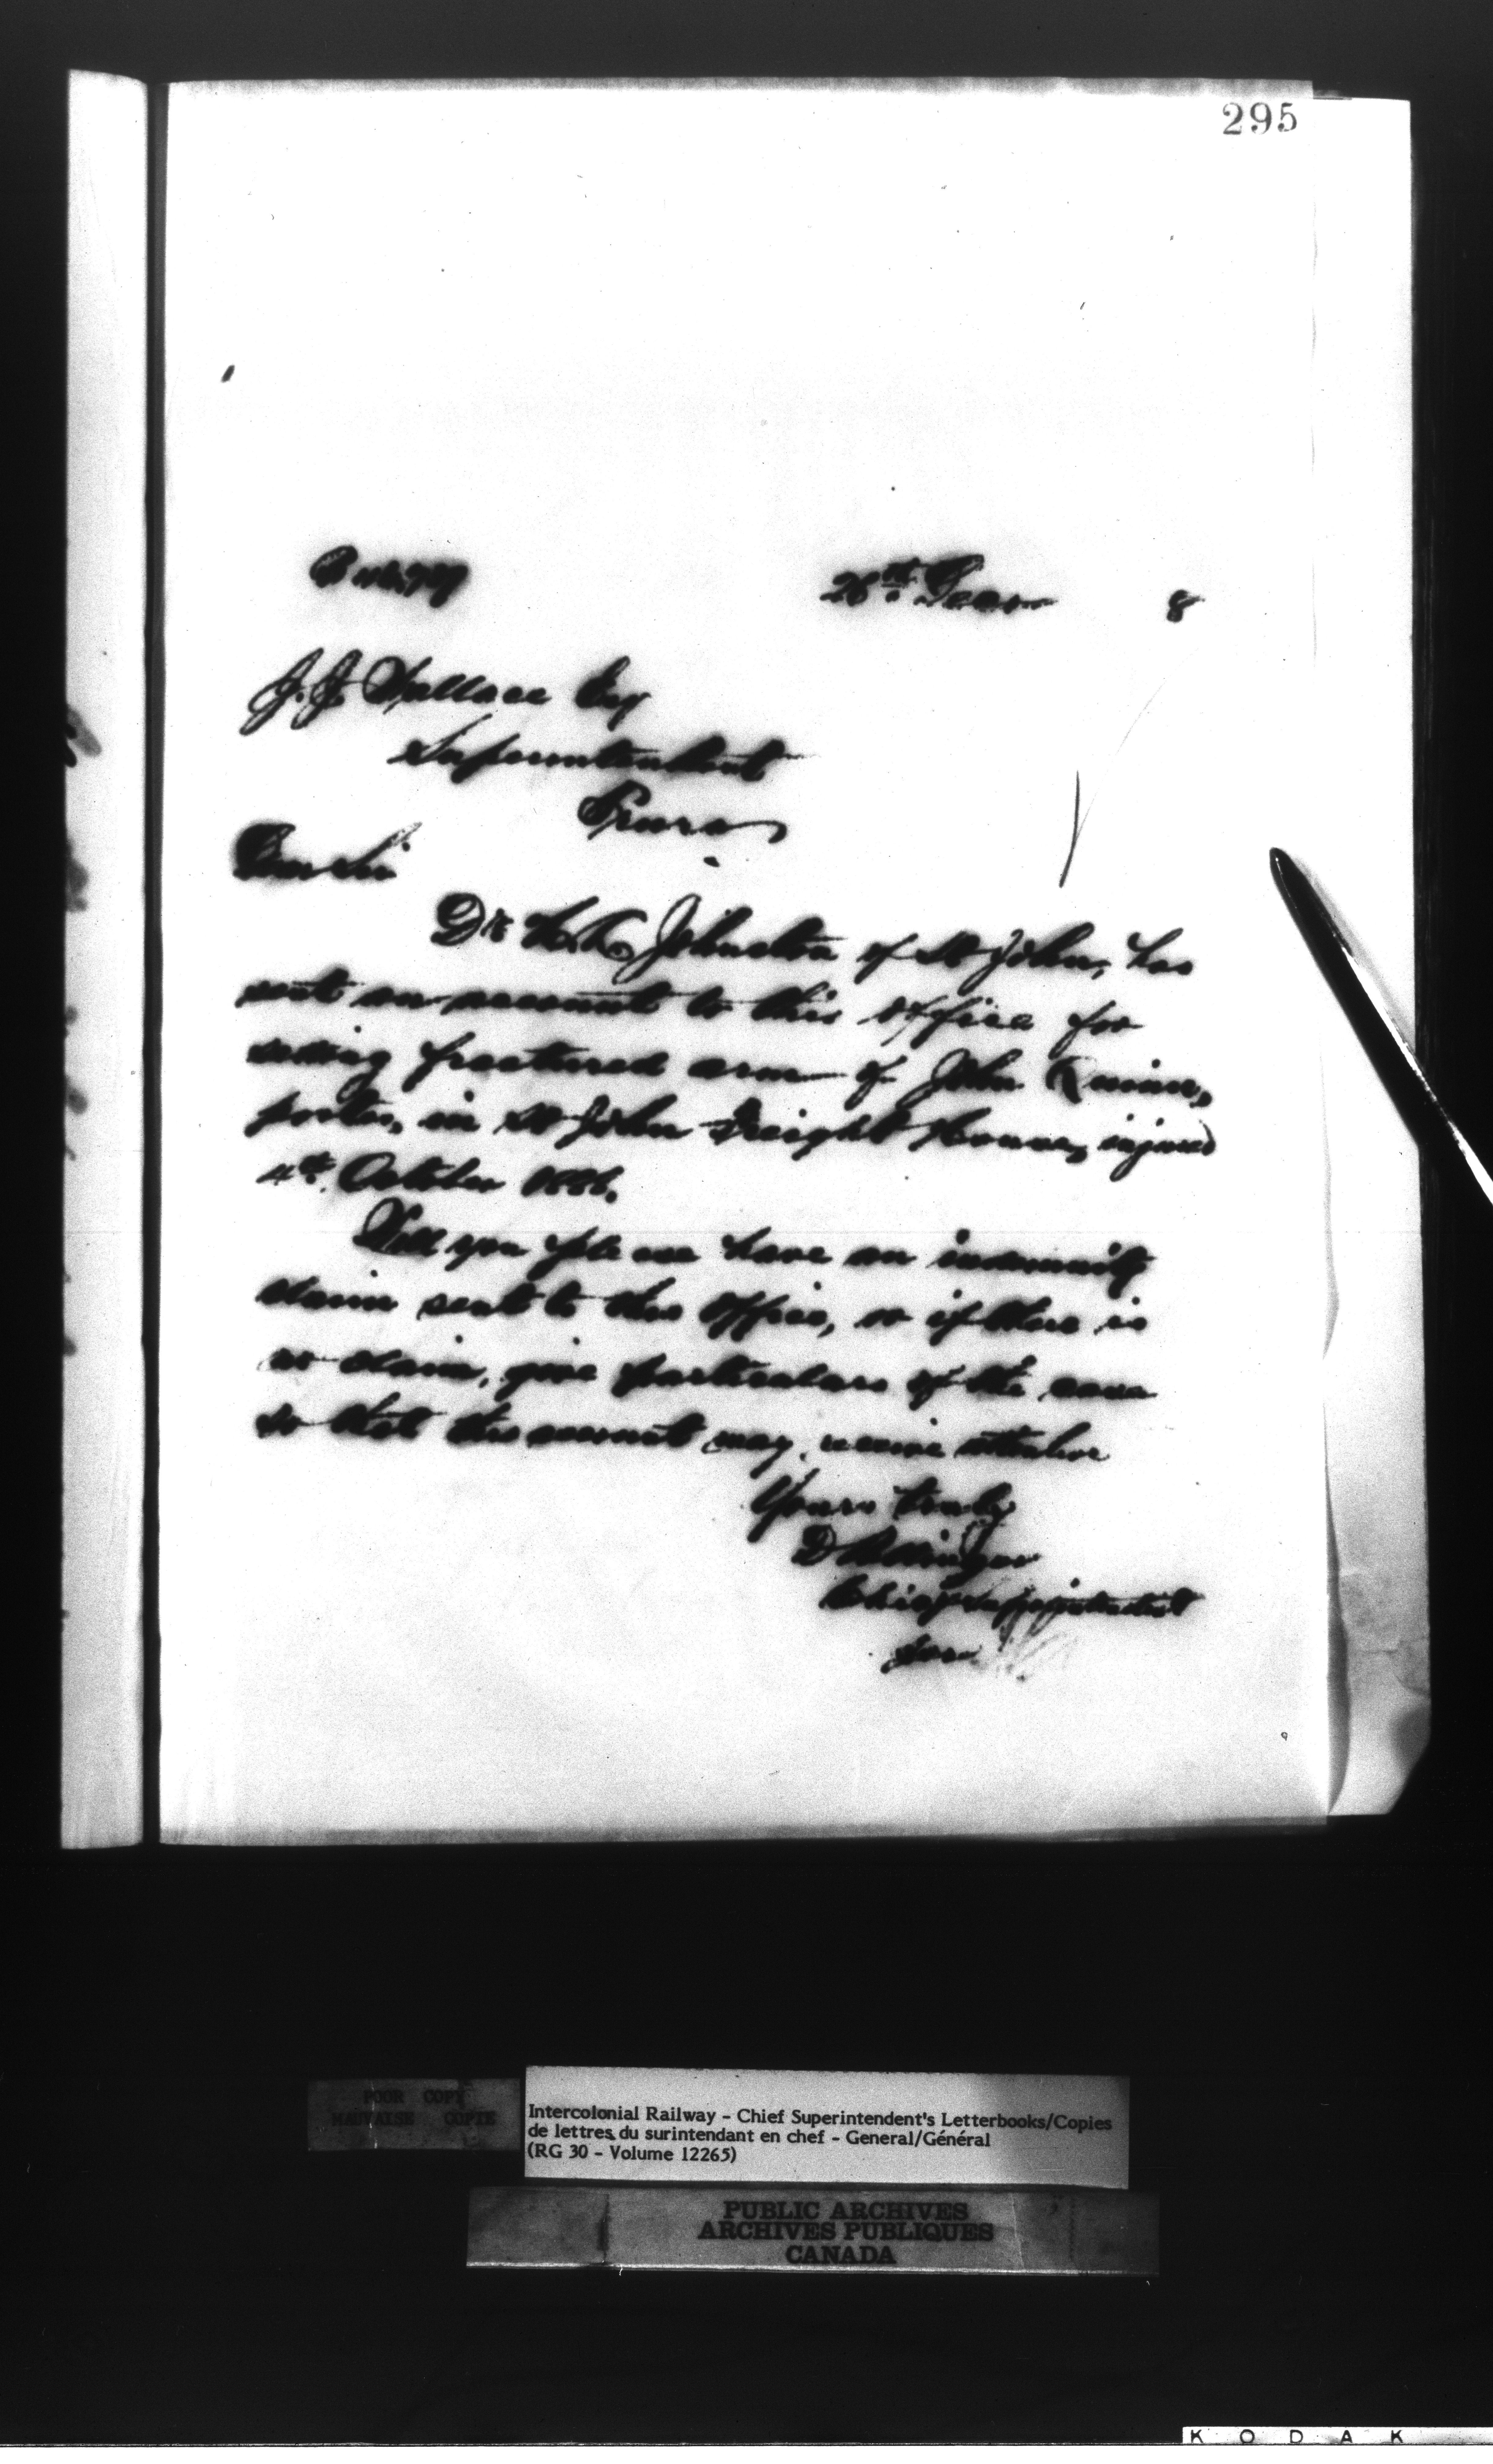 295
26th 8
J. J. Wallace Esq
Superintendent
Truro
Dear Sir
Dr Johnston of St John, has
sent an account to this office for
setting fractured arm of John Quinn,
porter, in St John Freight House, injured
4th October 1886.
Will you please have an indemnity
claim sent to this office, or if there is
no claim, give particulars of the case
so that the account may receive attention
Yours truly
D Pottinger
Chief Superintendent
POOR COPY
MAUVAISE COPIE
Intercolonial Railway - Chief Superintendent's Letterbooks/Copies
de lettres du surintendant en chef - General/Général
(RG 30 - Volume 12265)
PUBLIC ARCHIVES
ARCHIVES PUBLIQUES
CANADA
KODAK